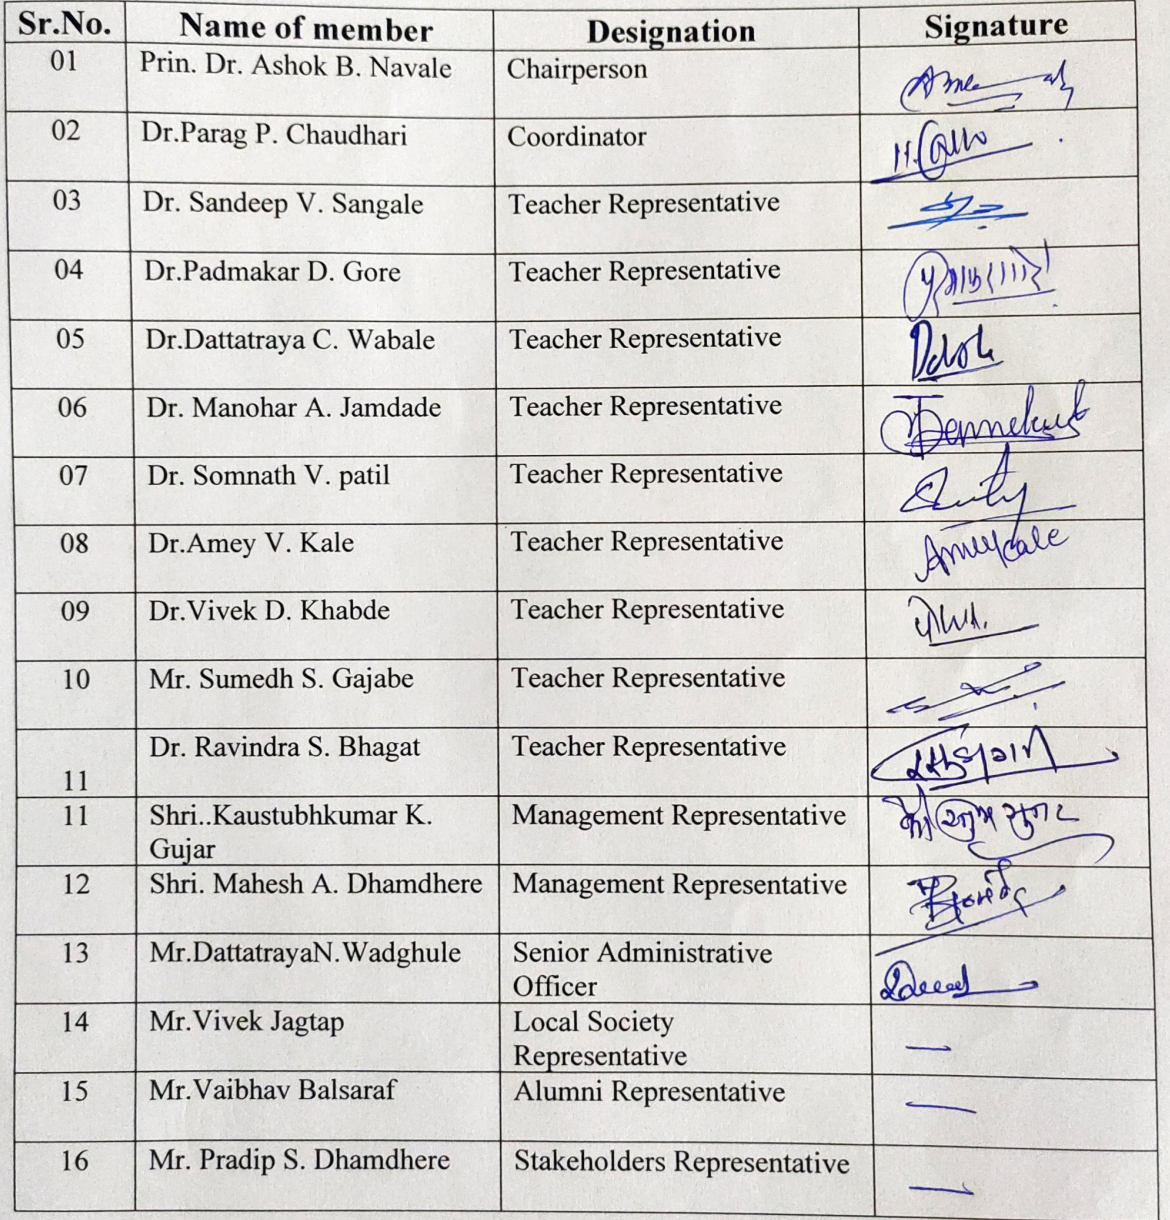 Sr.No. Name of member Designation Signature
01 Prin. Dr. Ashok B. Navale Chairperson
02 Dr.Parag P. Chaudhari Coordinator
03 Dr. Sandeep V. Sangale Teacher Representative
04 Dr.Padmakar D. Gore Teacher Representative
05 Dr.Dattatraya C. Wabale Teacher Representative
06 Dr. Manohar A. Jamdade Teacher Representative
07 Dr. Somnath V. patil Teacher Representative
08 Dr.Amey V. Kale Teacher Representative
09 Dr.Vivek D. Khabde Teacher Representative
10 Mr. Sumedh S. Gajabe Teacher Representative
Dr. Ravindra S. Bhagat Teacher Representative
11
11 Shri..Kaustubhkumar K. Management Representative
Gujar
12 Shri. Mahesh A. Dhamdhere Management Representative
13 Mr.DattatrayaN.Wadghule Senior Administrative
Officer
14 Mr.Vivek Jagtap Local Society
Representative
15 Mr.Vaibhav Balsaraf Alumni Representative
16 Mr. Pradip S. Dhamdhere Stakeholders Representative